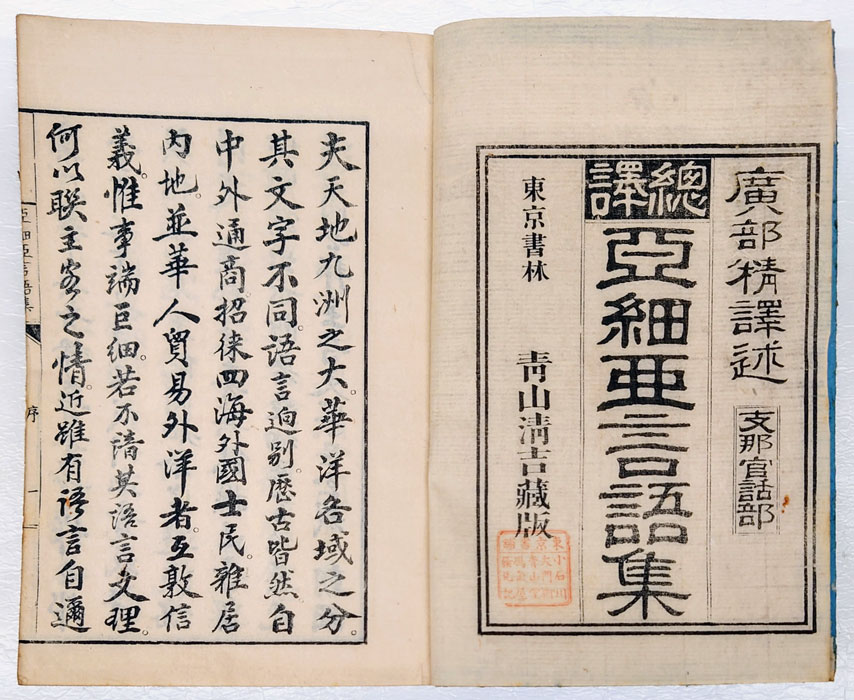 廣部精譯述
支那官話部
總譯
亞細亜言語集
東京書林
青山清吉藏版
夫天地九洲之大華洋各域之分。
其文字不同。語言迥別。歷古皆然。自
中外通商招徠四海外國士民。雜居
內地。並華人貿易外洋者。互敦信
義。惟事端巨細。若不諳其語言文理。
何以聯主客之情。近雖有語言自邇
亞細亞言語集
序
一